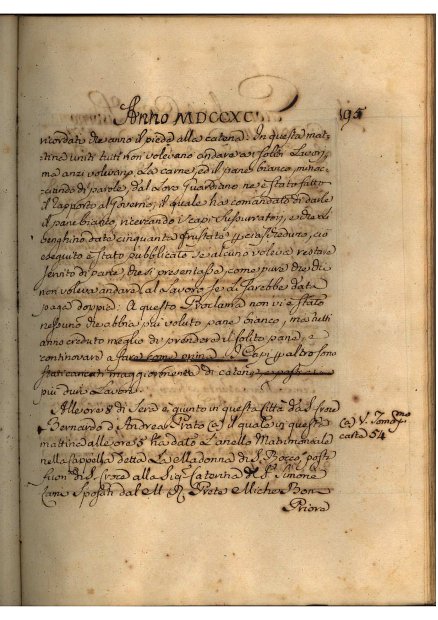 Anno MDCCXC
195
ricordato che anno il piede alla catena: In questa mat-
tina uniti tutti non volevano andare ai soliti Lavori,
ma anzi volevano La carne, ed il pane bianco, minac-
ciando di parole, dal Loro Guardiano ne è stato fatto
il Rapporto al Governo; il quale ha comandato di darle
il pane bianco, ricercando i capi Sussurratori, e che
benghino date cinquanta frustate p ciascheduno, ciò
eseguito è stato pubblicato Se alcuno voleva restare
servito di pane, che si presentasse, come pure che chi
non voleva andare al Lavoro se li Sarebbe data
paga doppia: A questo Proclama non vi è stato
nessuno che abbia più voluto pane bianco, ma tutti
anno creduto meglio di prendere il solito pane, e
continovare a fare come prima. I Capi p altro sono
stati caricati maggiormente di catene,
più duri Lavori.
Alle ore 8 di Sera è giunto in questa Città da S. Croce
Bernardo d'Andrea Prato (a) il quale in questa
mattina alle ore 8 ha dato L'anello Matrimoniale
nella Cappella detta La Madonna di S. Rocco post
fuori di S. Croce alla Sig.ra Caterina di Simone
Cami Sposati dal M. R. Prete Michele Bon-
Priore
(a) V. Tomo
carte 54